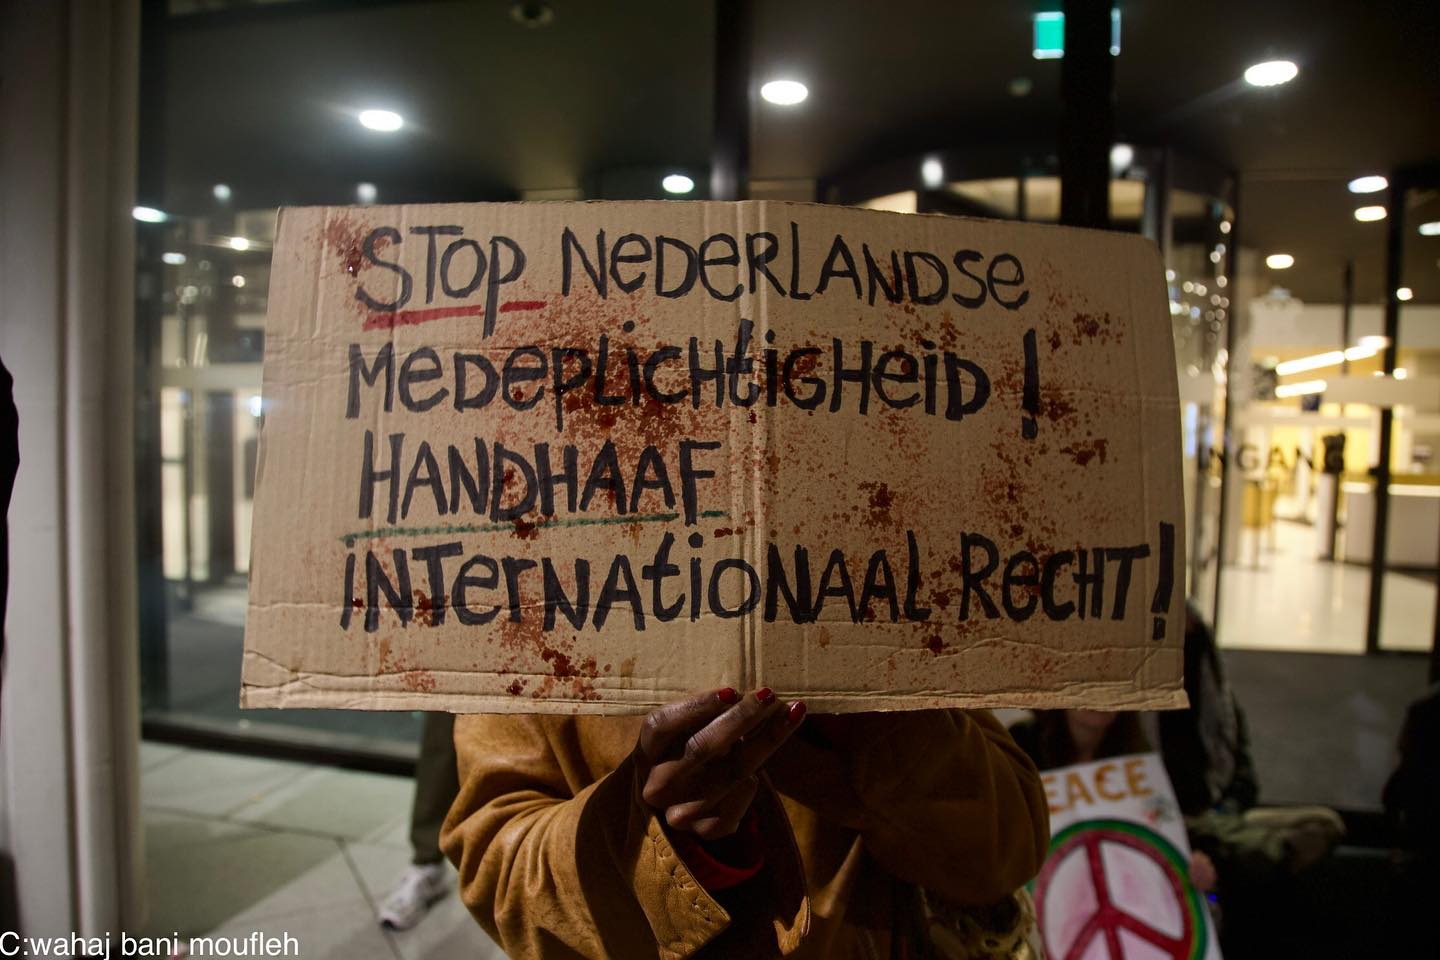 STOP NEDERLANDSE
MEDEPLICHTIGHEID!
HANDHAAF
INTERNATIONAAL RECHT!
NGANG
EACE
C:wahaj bani moufleh